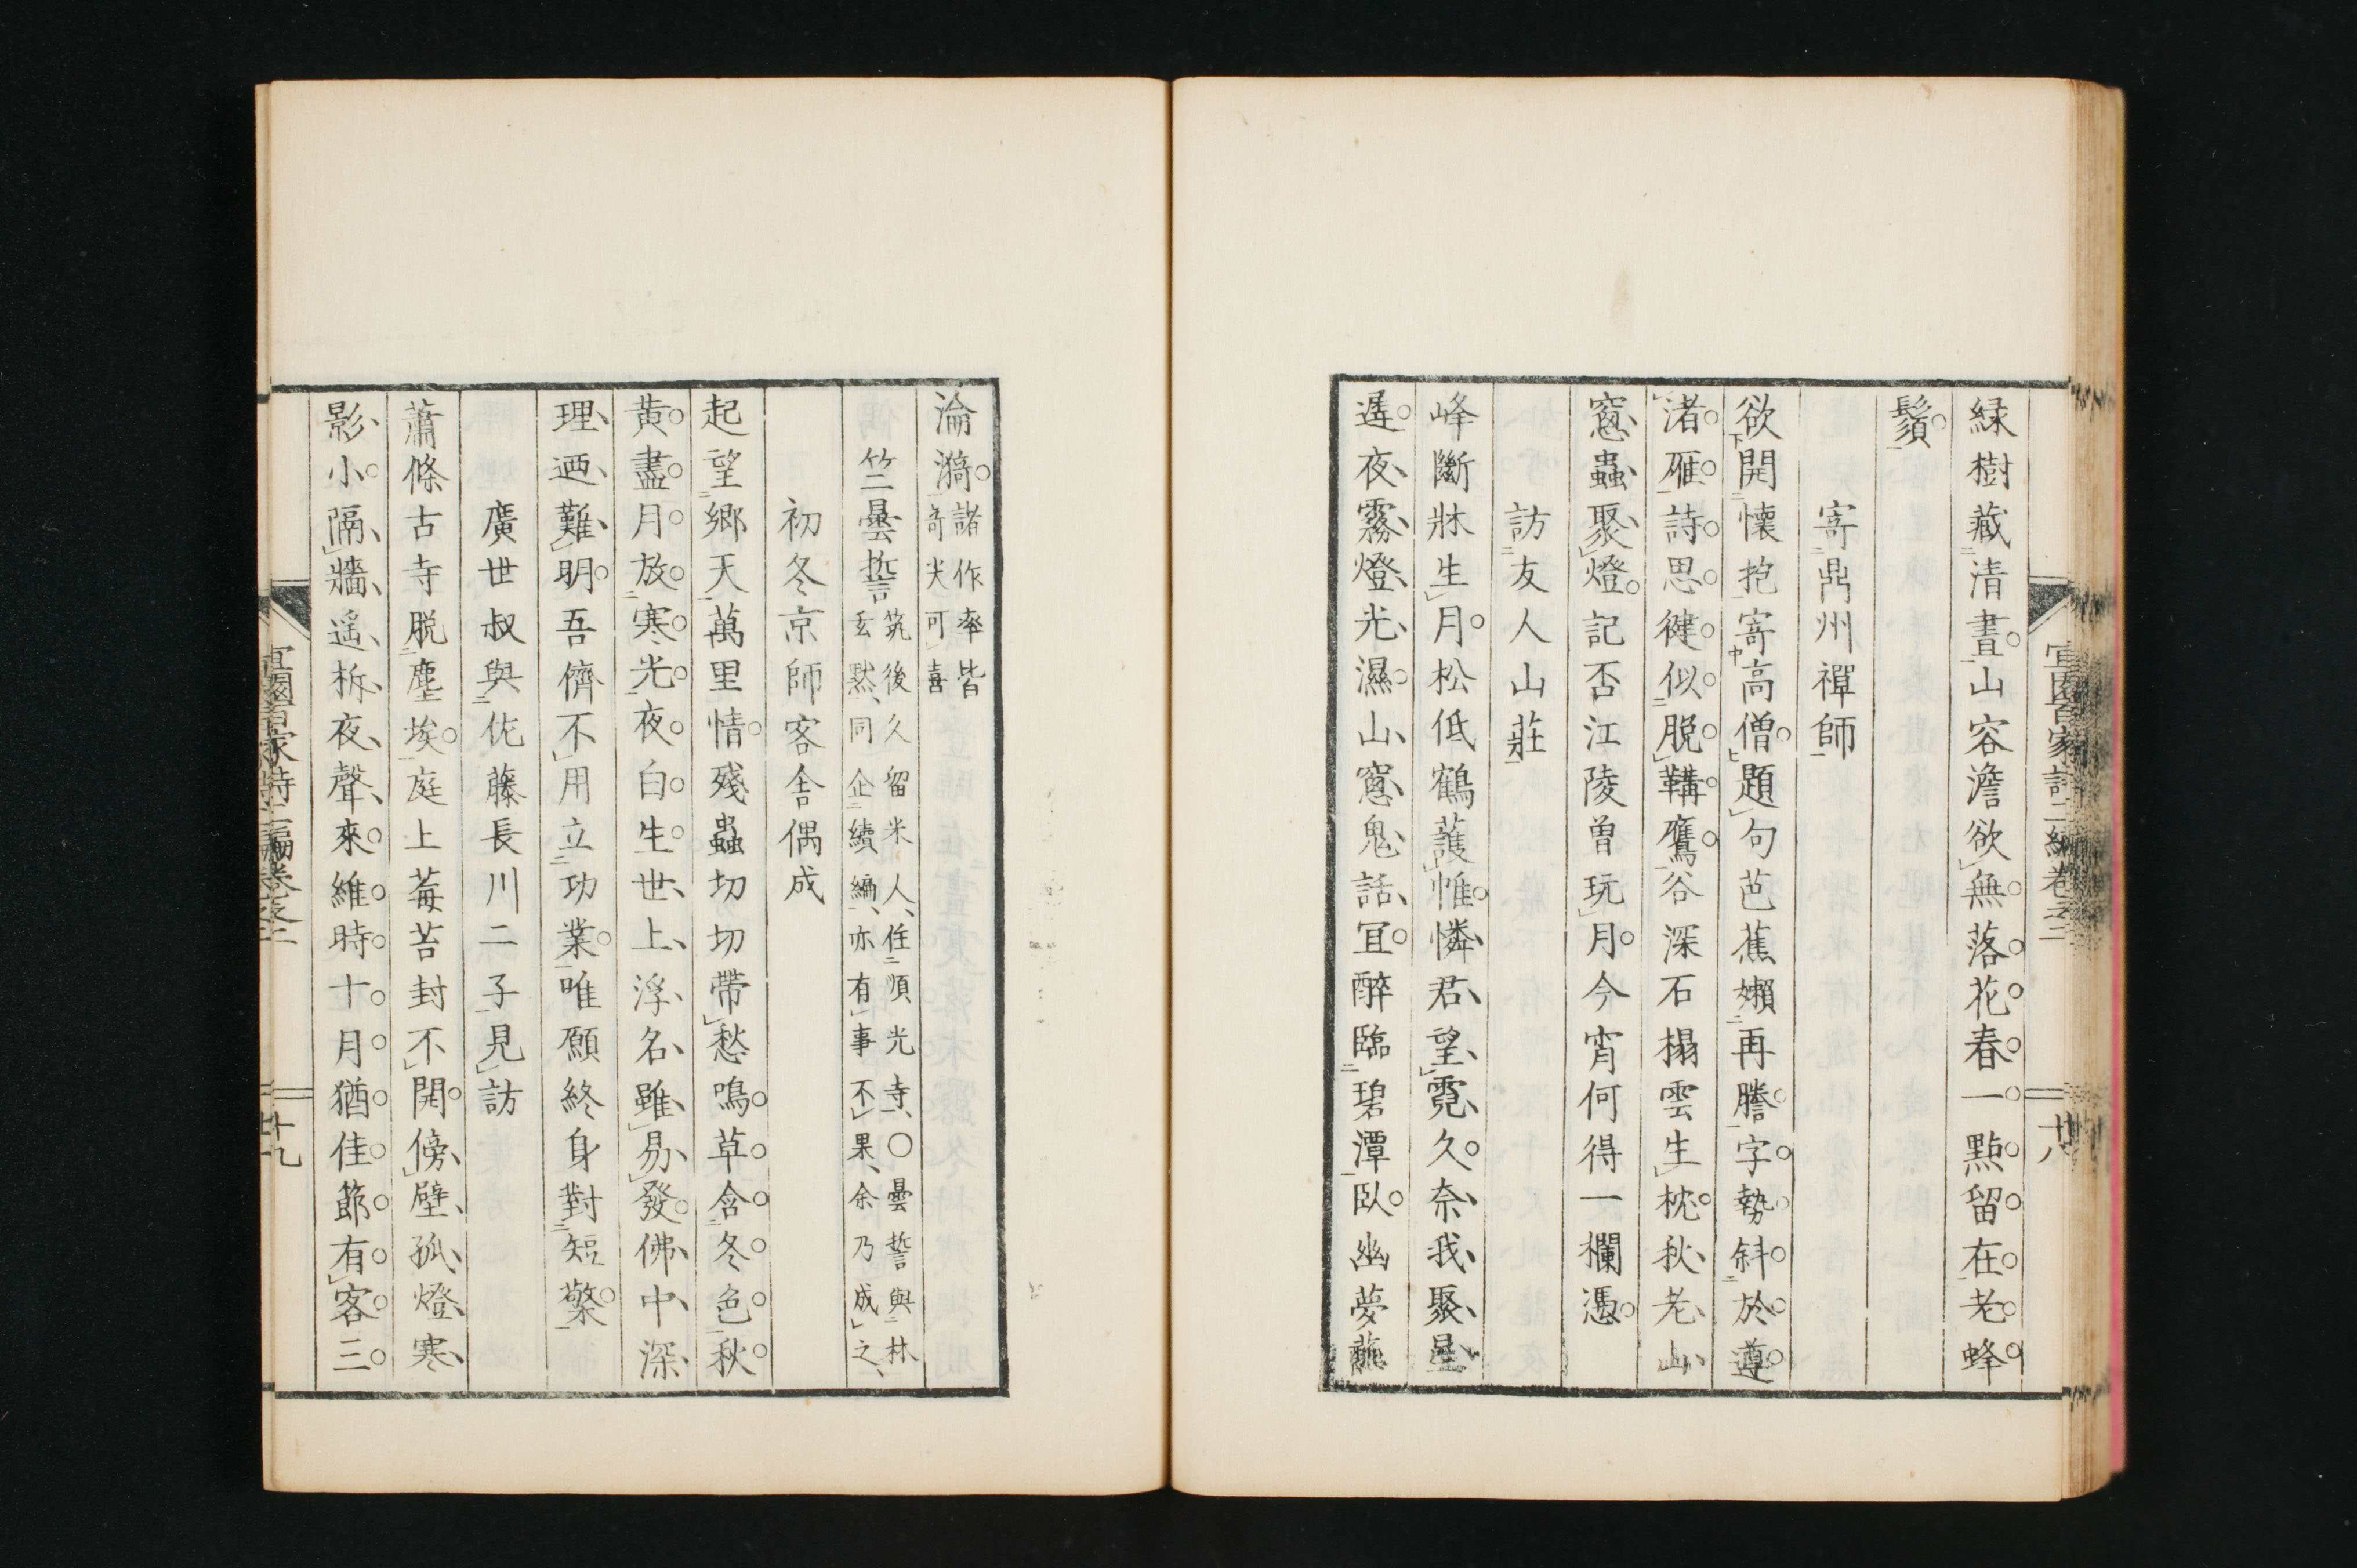 綠樹藏清晝山容澹欲無落花春一點留在老蜂
鬚
寄鼎州禪師
欲開懷抱寄高僧題句芭蕉嬾再謄字勢斜於遵
渚雁詩思健似脫鞲鷹谷深石榻雲生枕秋老山
窻蟲聚燈記否江陵曾玩月今宵何得一欄憑
訪友人山莊
峰斷牀生月松低鶴護帷憐君望霓久奈我聚星
遲夜霧燈光濕山窻鬼話宜醉臨碧潭臥幽夢蘸
宜園百家詩二編卷之二
十八
淪漪諸作率皆
奇尖可喜
竺曇誓筑後久留米人住順光寺○曇誓與林
玄黙同企續編亦有事不果余乃成之
初冬京師客舍偶成
起望鄉天萬里情殘蟲切切帶愁鳴草含冬色秋
黃盡月放寒光夜白生世上浮名雖易發佛中深
理迺難明吾儕不用立功業唯願終身對短檠
廣世叔與佐藤長川二子見訪
蕭條古寺脫塵埃庭上莓苔封不開傍壁孤燈寒
影小隔牆遥柝夜聲來維時十月猶佳節有客三
宜園百家詩二編卷之二
十九